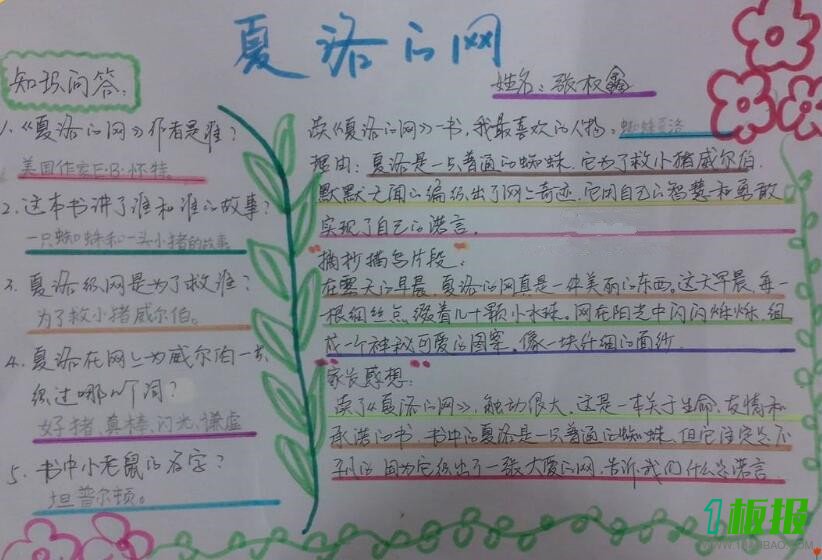 夏洛的网
姓名：张权鑫
知识问答：
1、《夏洛的网》作者是谁？
美国作家E·B·怀特。
2、这本书讲了谁和谁的故事？
一只蜘蛛和一头小猪的故事
3、夏洛织网是为了救谁？
为了救小猪威尔伯。
4、夏洛在网上为威尔伯一共
织过哪几个词？
好猪、真棒、闪光、谦虚
5、书中小老鼠的名字？
坦普尔顿。
读《夏洛的网》一书，我最喜欢的人物：蜘蛛夏洛
理由：夏洛是一只普通的蜘蛛，它为了救小猪威尔伯，
默默无闻的编织出了网上奇迹，它用自己的智慧和勇敢
实现了自己的诺言。
摘抄描写片段：
在雾天的早晨，夏洛的网真是一件美丽的东西。这天早晨，每一
根细丝点缀着几十颗小水珠。网在阳光中闪闪烁烁，组
成一个神秘可爱的图案，像一块纤细的面纱。
家长感想：
读了《夏洛的网》，触动很大，这是一本关于生命、友情和
承诺的书，书中的夏洛是一只普通的蜘蛛，但它注定是不
凡的，因为它织出了一张大爱的网，告诉我们什么是诺言
1板报
WWW.1BANBAO.COM